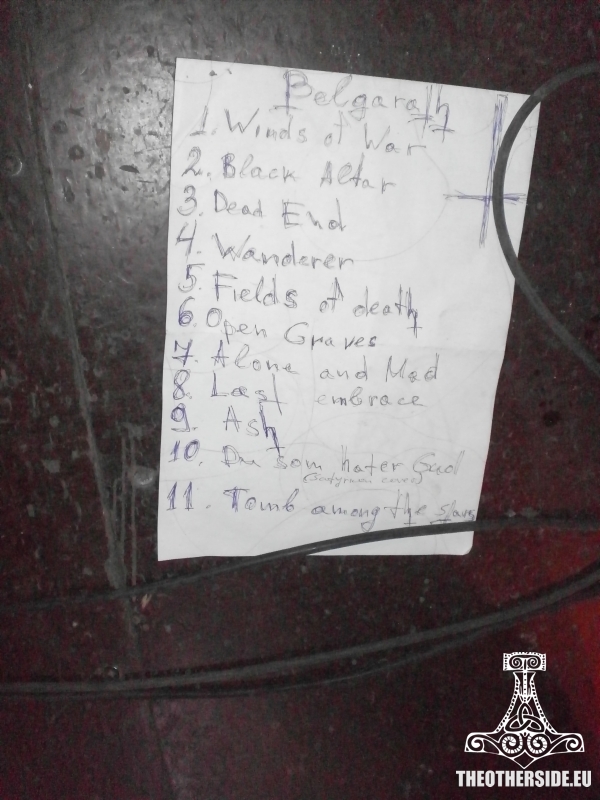 Belgarath
1. Winds of War
2. Black Altar
3. Dead End
4. Wanderer
5. Fields of death
6. Open Graves
7. Alone and Mad
8. Last embrace
9. Ash
10. Du som hater Gud
(Satyricon cover)
11. Tomb among the
THEOTHERSIDE.EU